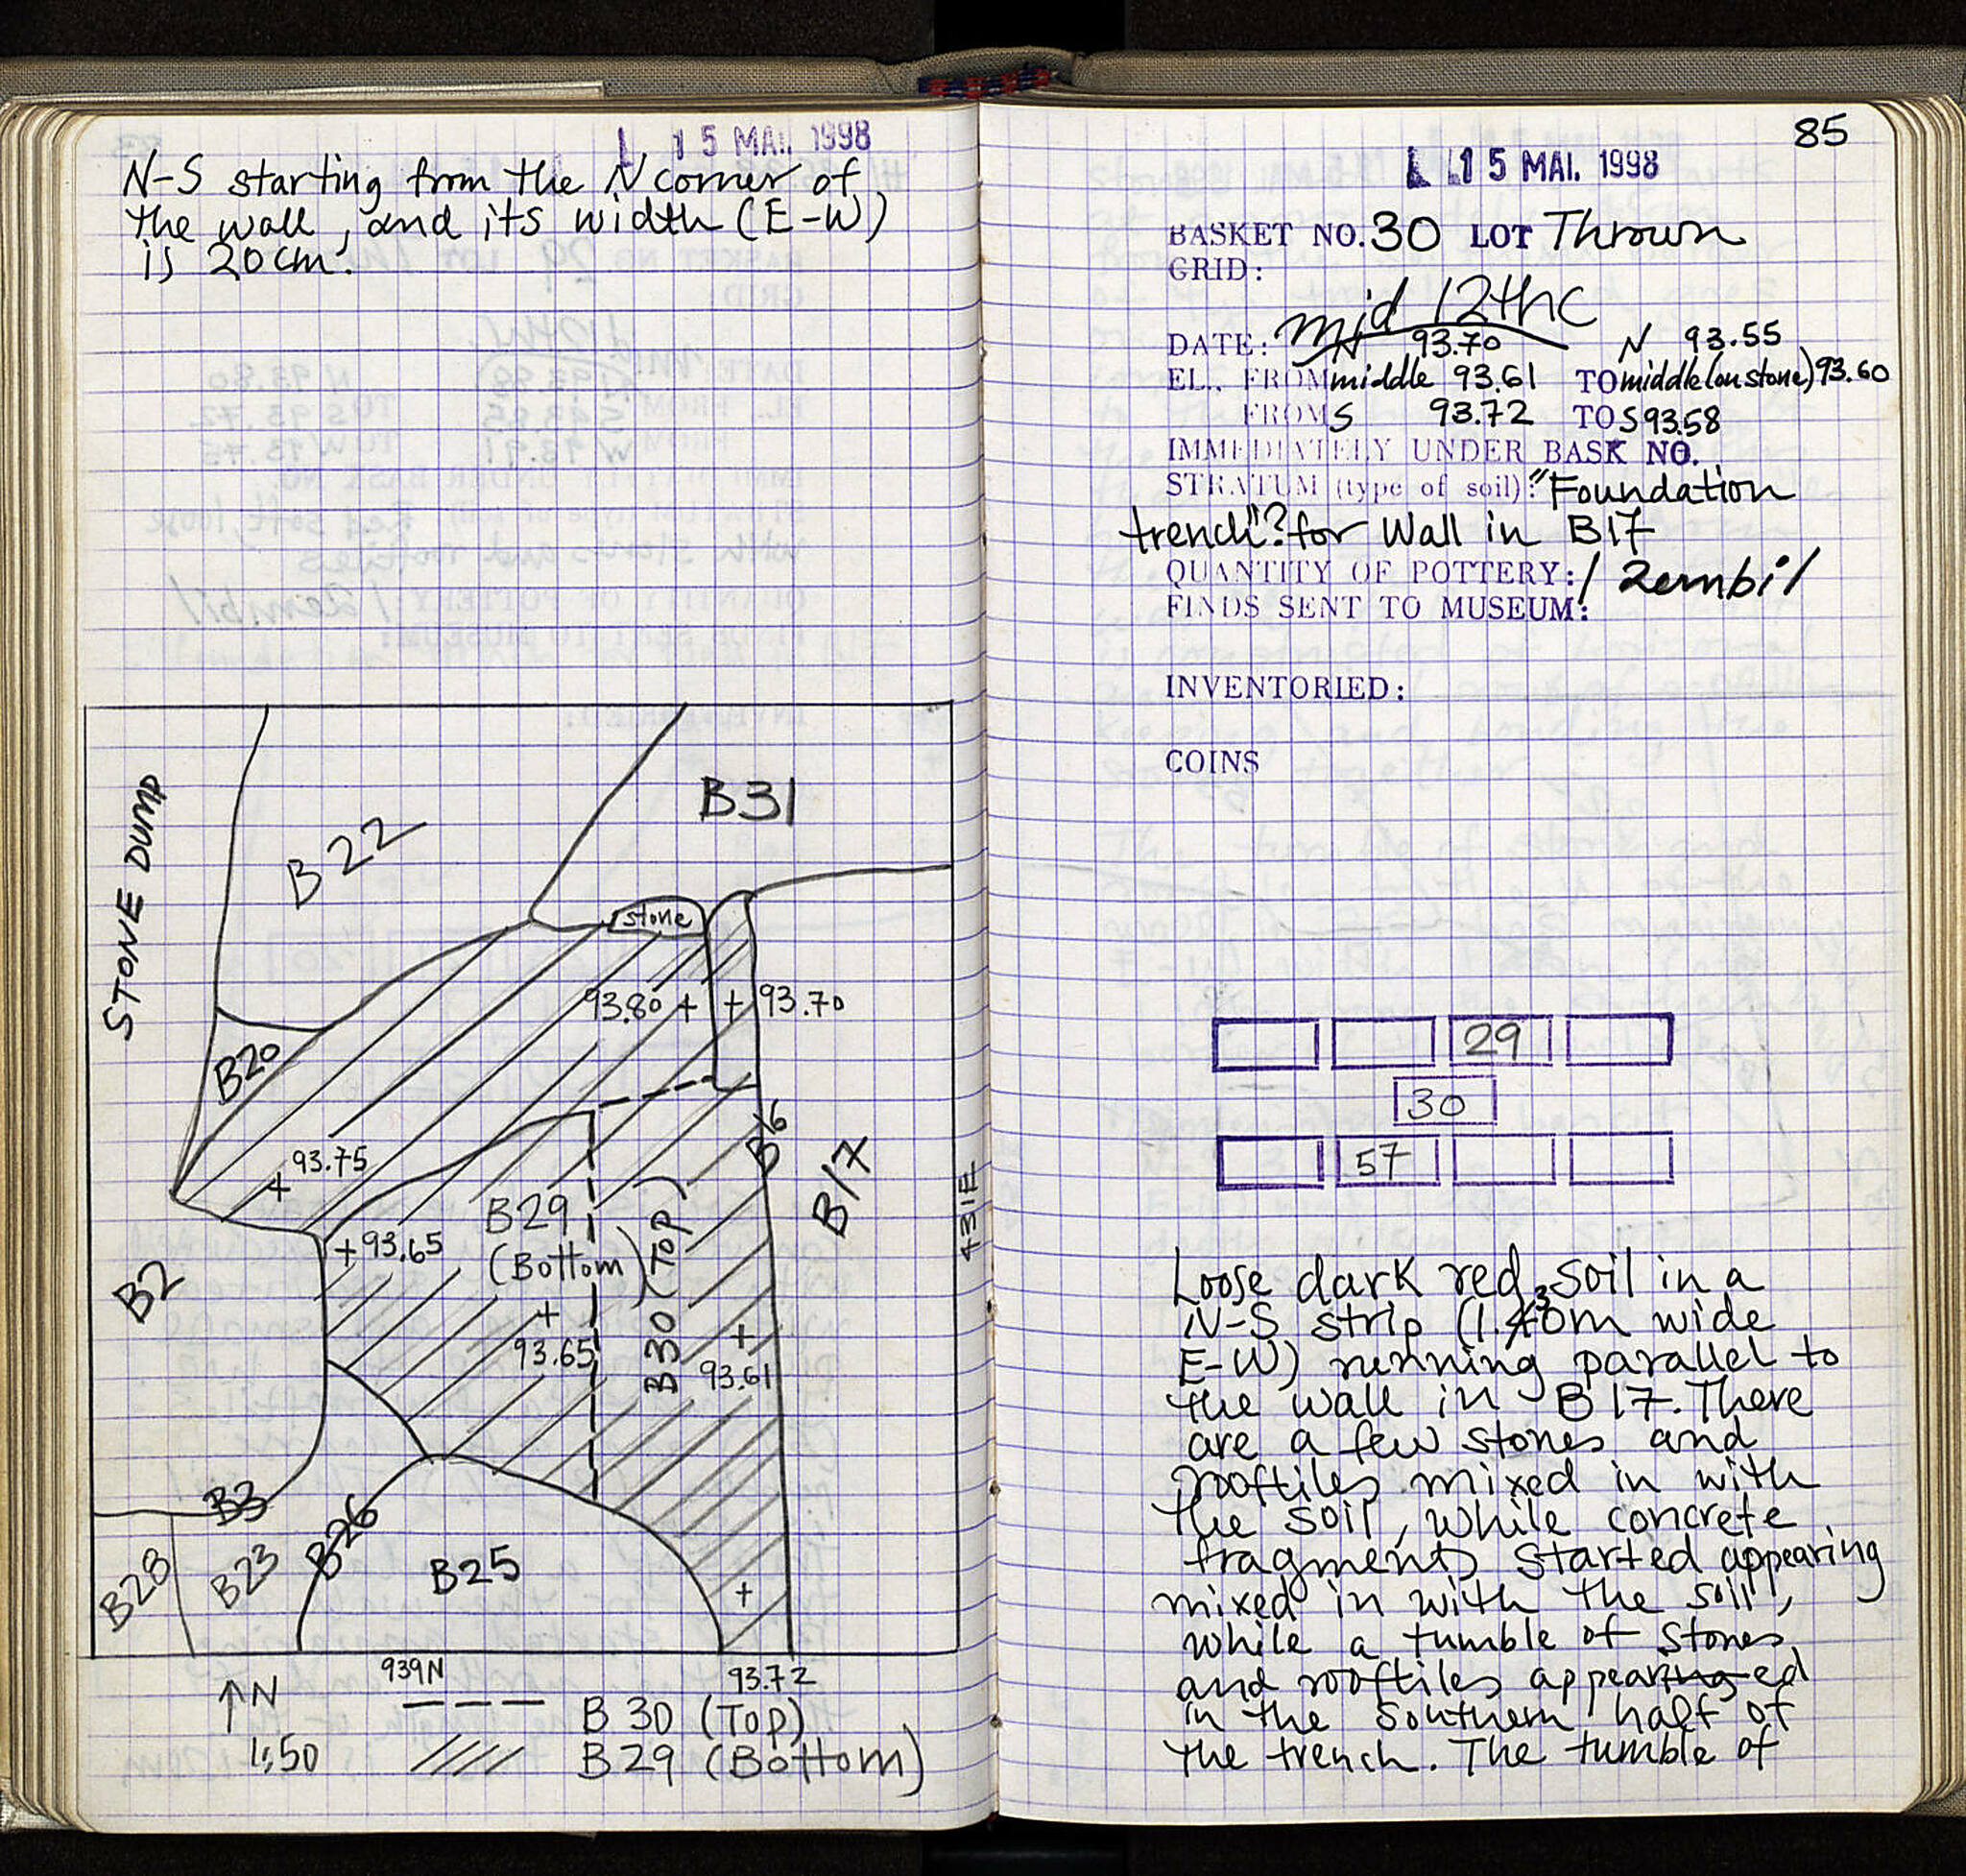 15 MAI. 1998
N-S starting from the N corner of
the wall, and its width (E-W)
is 20cm.
STONE DUMP
B22
B31
stone
93.80 +
+ 93.70
B20
+ 93.75
B6
B17
431E
B29
(Bottom)
+ 93.65
B30 (Top)
B2
+
93.65
+
93.61
B3
B28
B23
B26
B25
+
↑N
939N
93.72
B 30 (Top)
1:50
B29 (Bottom)
85
15 MAI. 1998
BASKET NO. 30 LOT Thrown
GRID:
mid 12thc
DATE: N 93.70 N 93.55
EL., FROM middle 93.61 TO middle (on stone) 93.60
FROM S 93.72 TO S 93.58
IMMEDIATELY UNDER BASK NO.
STRATUM (type of soil): "Foundation
trench"? for Wall in B17
QUANTITY OF POTTERY: 1 zembil
FINDS SENT TO MUSEUM:
INVENTORIED:
COINS
29
30
57
Loose dark red soil in a
N-S strip (1.30m wide
E-W) running parallel to
the wall in B17. There
are a few stones and
rooftiles mixed in with
the soil, while concrete
fragments started appearing
mixed in with the soil,
while a tumble of stones
and rooftiles appeared
in the Southern half of
the trench. The tumble of